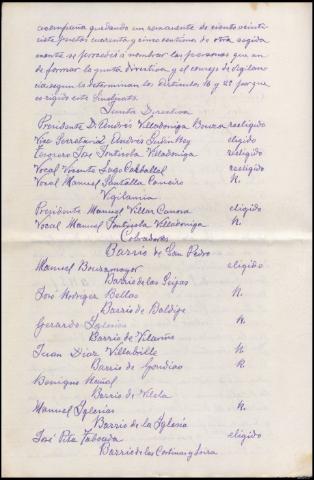 acompaña quedando un remanente de ciento veinti
siete pesetas cuarenta y cinco centimos de otra seguida
mente se procedió a nombrar las personas que an
de formar la Junta directiva y el consejo de vigilan
cia segun lo determinan los Articulos 16 y 29 porque
es regido este Sindicato.
Junta Directiva
Presidente D. Andrés Villadoniga Bouza reeligido
Vice Secretario D. Andrés eligido
Tesorero José Fontirola Villadoniga reeligido
Vocal Vicente Lago Carballal reeligido
Vocal Manuel Santalla Caneiro R.
Vigilancia
Presidente Manuel Villar Canora eligido
Vocal Manuel Fontirola Villadoniga R.
Cobradores
Barrio de San Pedro
Manuel Bouzamayor eligido
Barrio de las Geijas
José Modroger Bellas R.
Barrio de Baldige
Gerardo Iglesias R.
Barrio de Vilariño
Juan Diaz Villabille R
Barrio de Gondiao R
Benigno
Barrio de Vilela
Manuel Iglesias R.
Barrio de la Iglesia
José Pita Taboada eligido
Barrio de las Cortinas y Leira